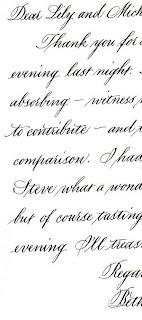 Dear Lily and Mich
Thank you for
evening last night.
absorbing – witness
to contribute – and
comparison. I had
Steve what a wond
but of course tasting
evening. I'll treas
Regar
Beth